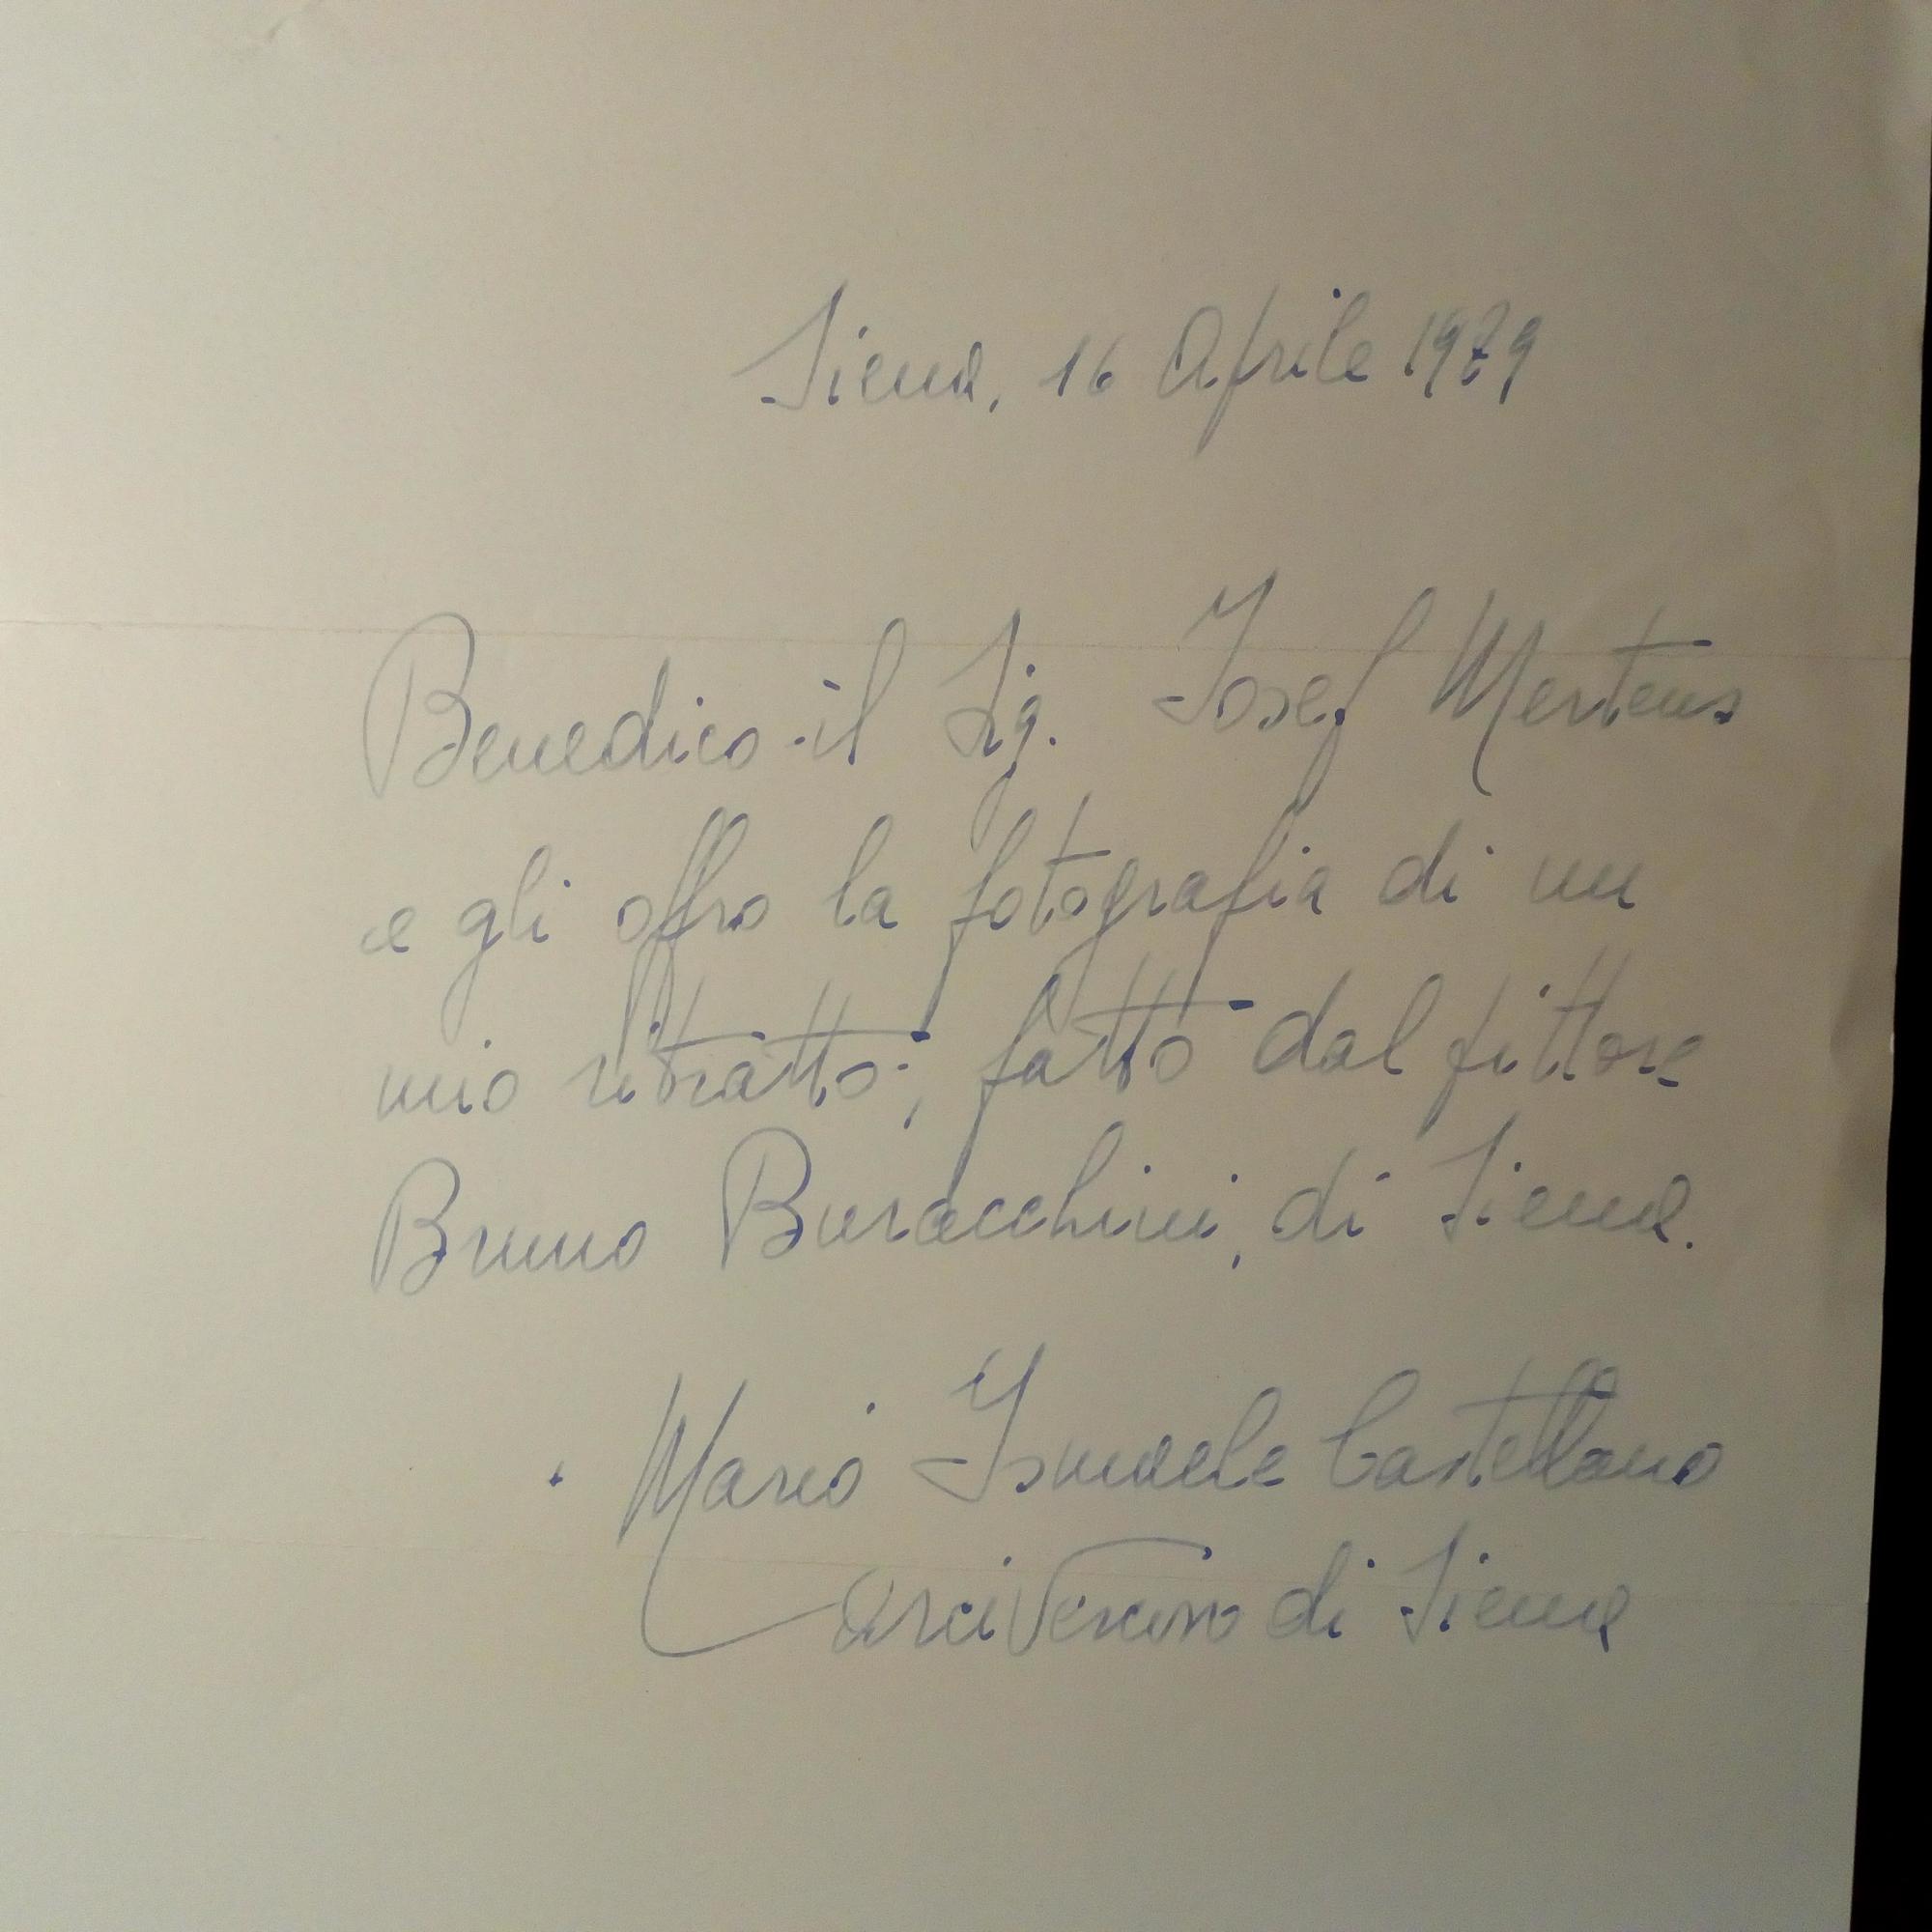 Siena, 16 Aprile 1979
Benedico il Sig. Josef Mertens
e gli offro la fotografia di un
mio ritratto, fatto dal pittore
Bruno Buracchini, di Siena.
+ Mario Ismaele Castellano
Arcivescovo di Siena